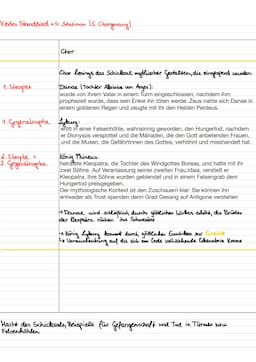 Viertes Standlied + 4. Stasimon (5. Chorgesang)
Chor
Chor besingt das Schicksal mythischer Gestalten, die eingesperrt wurden:
1. Strophe
Danae (Tochter Akrisios von Argos):
wurde von ihrem Vater in einem Turm eingeschlossen, nachdem ihm
prophezeit wurde, dass sein Enkel ihn töten werde. Zeus nahte sich Danae in
einem goldenen Regen und zeugte mit ihr den Helden Perdeus.
1. Gegenstrophe
Lykurg:
endet in einer Felsenhöhle, wahnsinnig geworden, den Hungertod, nachdem
er Dionysos verspottet und die Mänaden, die den Gott anbetenden Frauen,
und die Musen, die Gefährtinnen des Gottes, verhöhnt und misshandelt hat.
2. Strophe +
2. Gegenstrophe
König Phineus:
heiratete Kleopatra, die Tochter des Windgottes Boreas, und hatte mit ihr
zwei Söhne. Auf Veranlassung seiner zweiten Frau, Idaia, verstieß er
Kleopatra. Ihre Söhne wurden geblendet und in einem Felsengrab dem
Hungertod preisgegeben.
Der mythologische Kontext ist den Zuschauern klar: Sie können ihn
entweder als Trost spenden denn Grad Gesang auf Antigone verstehen
→ Danae wird schließlich durch göttlichen Willen erlöst, die
→ König Lykurg kommt durch göttliches Einwirken zur Einsicht
↳ Vorausdeutung auf die sich am Ende vollziehende Erkenntnis Kreons
Macht des Schicksals, Beispiele für Gefangenschaft und Tod in Türmen bzw.
Felsenhöhlen